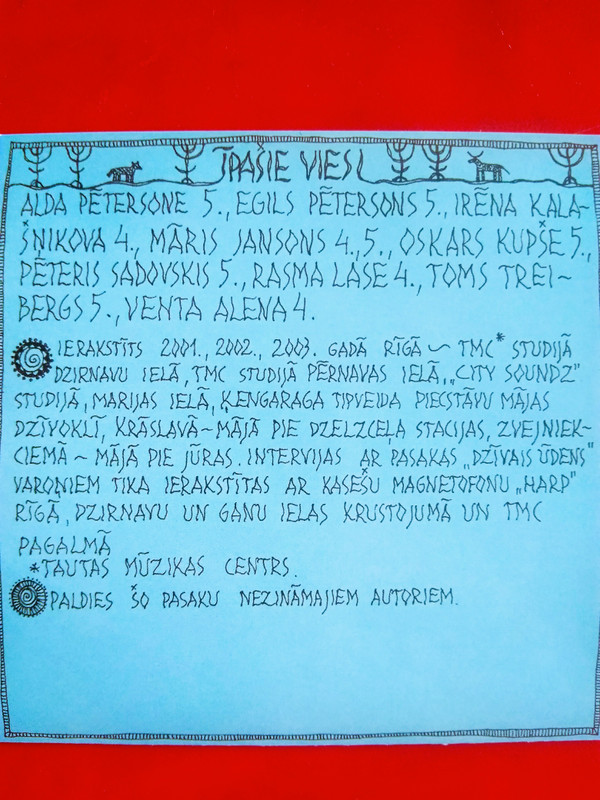 ĪPAŠIE VIESI
ALDA PĒTERSONE 5., EGILS PĒTERSONS 5., IRĒNA KALA-
ŠNIKOVA 4., MĀRIS JANSONS 4.,5., OSKARS KUPŠE 5.,
PĒTERIS SADOVSKIS 5., RASMA LASE 4., TOMS TREI-
BERGS 5., VENTA ALENA 4.
IERAKSTĪTS 2001., 2002., 2003. GADĀ RĪGĀ ~ TMC* STUDIJĀ
DZIRNAVU IELĀ, TMC STUDIJĀ PĒRNAVAS IELĀ, „CITY SOUNDZ"
STUDIJĀ, MARIJAS IELĀ, ĶENGARAGA TIPVEIDA PIECSTĀVU MĀJAS
DZĪVOKLĪ, KRĀSLAVĀ ~ MĀJĀ PIE DZELZCEĻA STACIJAS, ZVEJNIEK-
CIEMĀ ~ MĀJĀ PIE JŪRAS. INTERVIJAS AR PASAKAS „DZĪVAIS ŪDENS"
VAROŅIEM TIKA IERAKSTĪTAS AR KASEŠU MAGNETOFONU „HARP"
RĪGĀ, DZIRNAVU UN GANU IELAS KRUSTOJUMĀ UN TMC
PAGALMĀ
*TAUTAS MŪZIKAS CENTRS.
PALDIES ŠO PASAKU NEZINĀMAJIEM AUTORIEM.